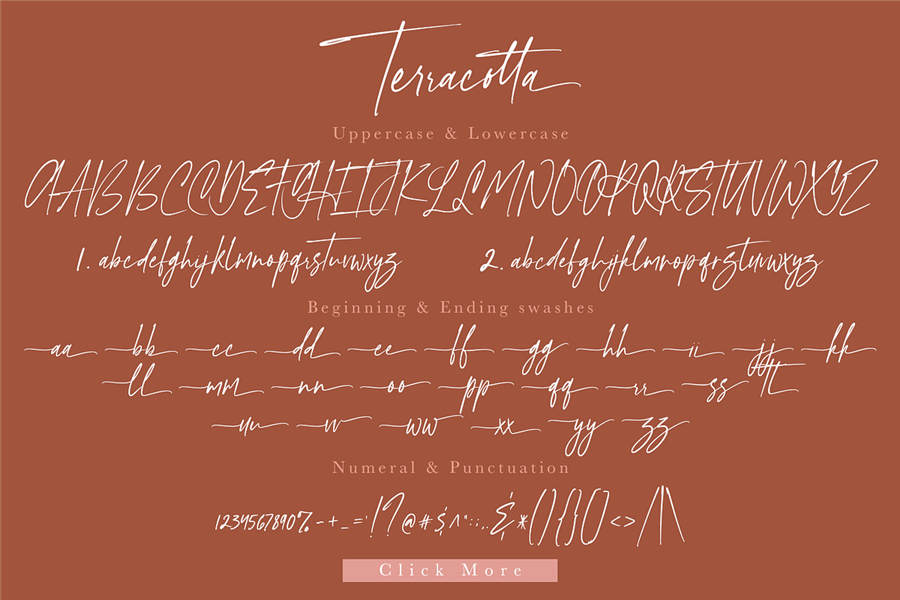 Terracotta
Uppercase & Lowercase
AABBCCDEFGHIIJKLLMNOOPQRSTUVWXYZ
1. abcdefghijklmnopqrstuvwxyz 2. abcdefghijklmnopqrstuvwxyz
Beginning & Ending swashes
aa bb cc dd ee ff gg hh ii jj kk
ll mm nn oo pp qq rr ss tt
uu vv ww xx yy zz
Numeral & Punctuation
1234567890%-+_='!?@#$^":;,.&*(){}[]<>/|\
Click More